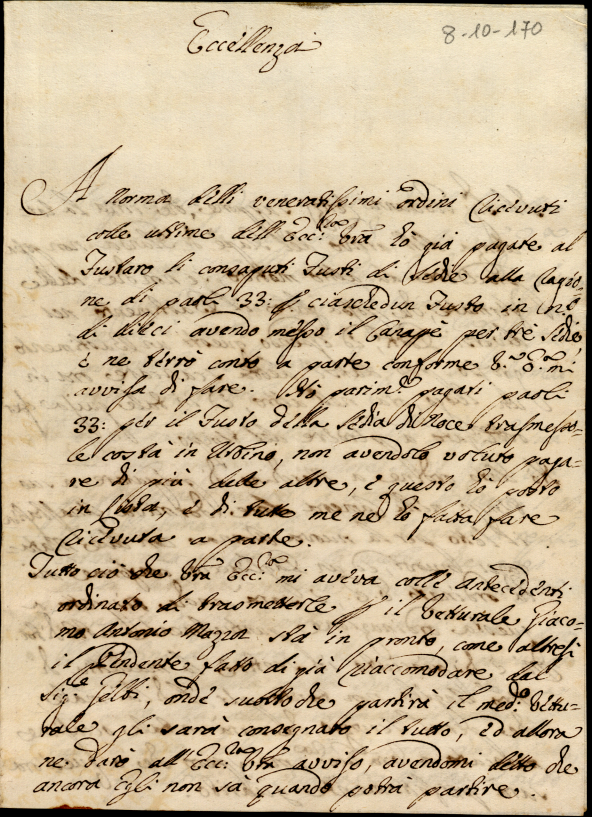 8-10-170
Eccellenza
A norma delli veneratissimi ordini ricevuti
colle ultime dell'Ecc.za Vrã hò già pagate al
Fustaro li consaputi Fusti di Sedie alla ragio-
ne di paoli 33: p ciaschedun Fusto in nº
di dieci avendo messo il Canapè per trè sedie
e ne terrò conto a parte conforme V.ra E.za mi
avvisa di fare. Hò parim.te pagati paoli
33: per il Fusto della sedia di Noce trasmessa-
le costà in Urbino, non avendolo voluto paga-
re di più delle altre, e questo hò posto
in lista, e di tutte me ne hò fatta fare
ricevuta a parte.
Tutto ciò che Vrã Ecc.za mi aveva colle antecedenti
ordinato di trasmetterle p il Vetturale Giaco-
mo Antonio Mazon stà in pronto, come altresì
il Pendente fatto di già riaccomodare dal
Sig.re, onde subbito che partirà il med.º Vettu-
rale gli sarà consegnato il tutto, ed allora
ne darò all'Ecc.za Vrã avviso, avendomi detto che
ancora Egli non sà quando potrà partire.